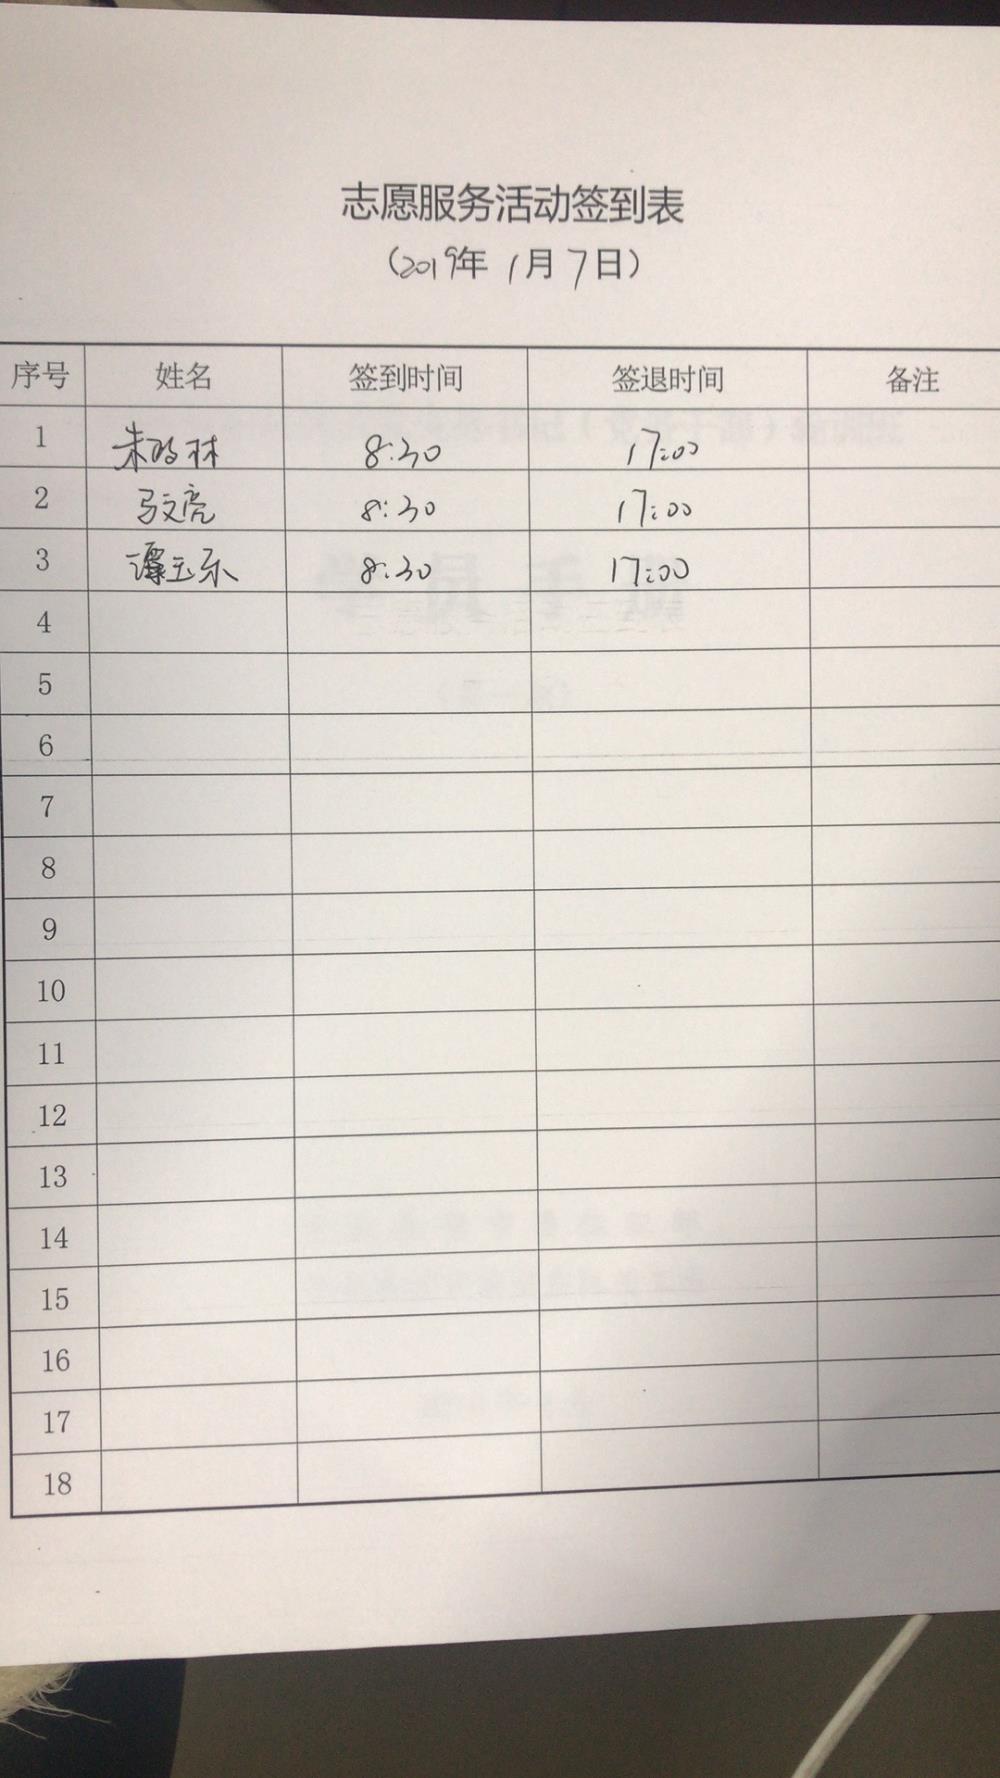 志愿服务活动签到表
(2019年1月7日)
序号 姓名 签到时间 签退时间 备注
1 朱明林 8:30 17:00
2 马文亮 8:30 17:00
3 谭玉乐 8:30 17:00
4
5
6
7
8
9
10
11
12
13
14
15
16
17
18